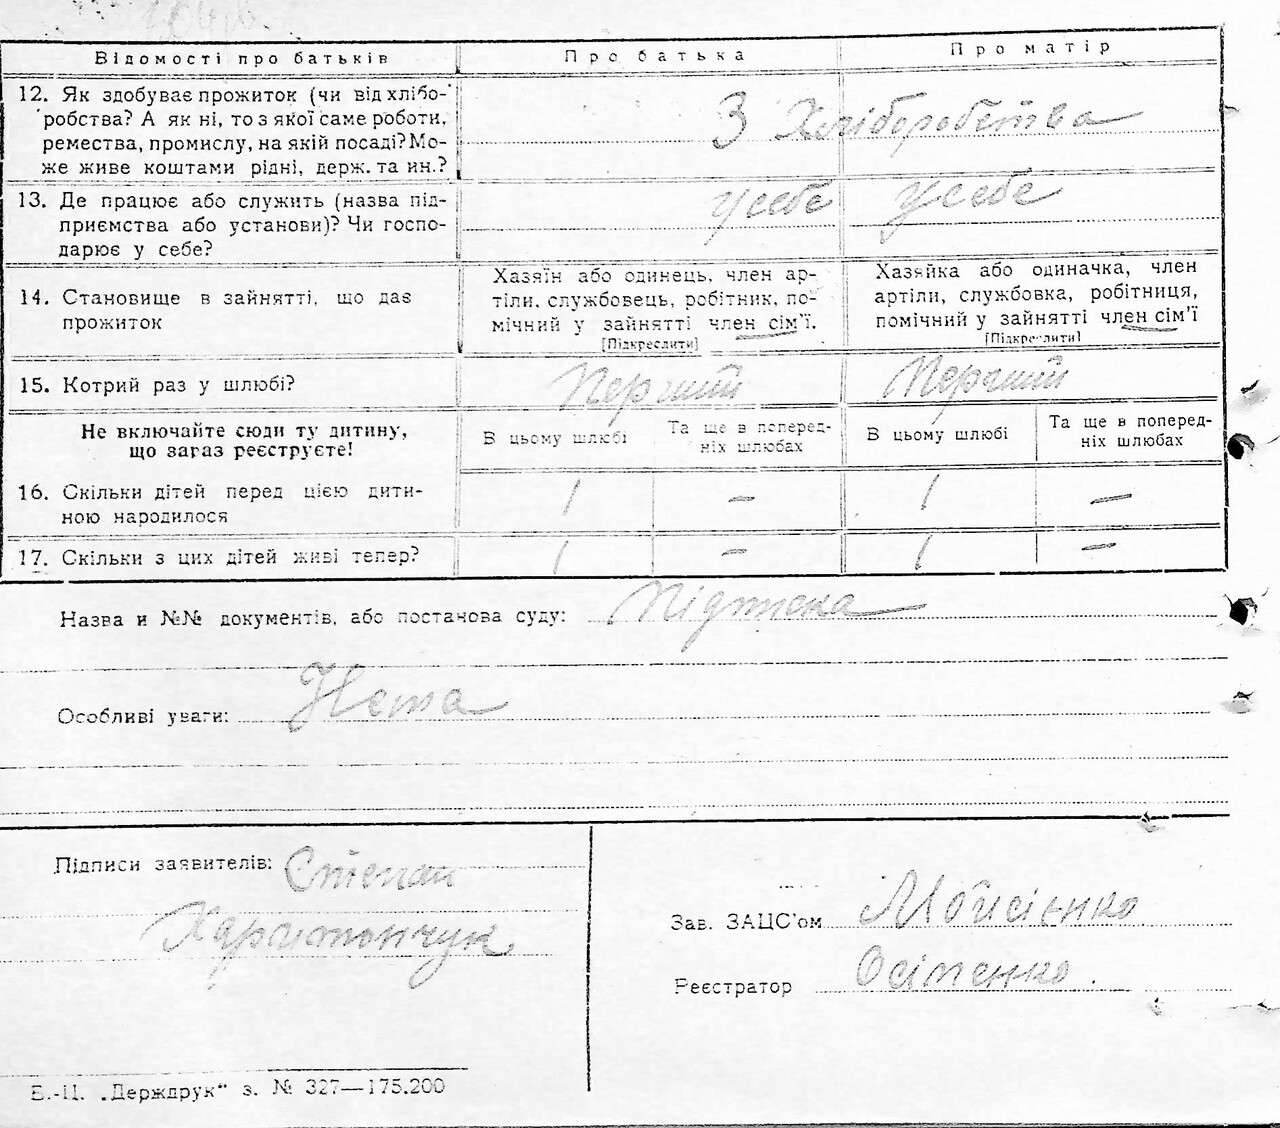 Відомості про батьків Про батька Про матір
12. Як здобуває прожиток (чи від хлібо-
робства? А як ні, то з якої саме роботи,
ремества, промислу, на якій посаді? Мо-
же живе коштами рідні, держ. та ин.?
З Хліборобства
13. Де працює або служить (назва під-
приємства або установи)? Чи госпо-
дарює у себе?
у себе у себе
14. Становище в зайнятті, що дає
прожиток
Хазяїн або одинець, член ар-
тіли, службовець, робітник, по-
мічний у зайнятті член сім'ї.
[Підкреслити]
Хазяйка або одиначка, член
артіли, службовка, робітниця,
помічний у зайнятті член сім'ї
[Підкреслити]
15. Котрий раз у шлюбі? Перший Перший
Не включайте сюди ту дитину,
що зараз реєструєте!
В цьому шлюбі
Та ще в поперед-
ніх шлюбах
В цьому шлюбі
Та ще в поперед-
ніх шлюбах
16. Скільки дітей перед цією дити-
ною народилося
1 — 1 —
17. Скільки з цих дітей живі тепер? 1 — 1 —
Назва и №№ документів, або постанова суду: Підписка
Особливі уваги: Нема
Підписи заявителів: Степан
Харитончук
Зав. ЗАЦС'ом Мойсієнко
Реєстратор Осіпенко.
Б.-Ц. „Держдрук" з. № 327—175.200